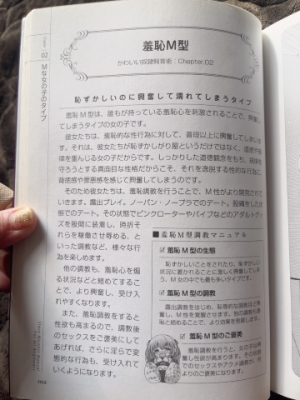 羞恥M型
かわいい奴隷飼育者:Chapter.02
02 Mな女の子のタイプ
恥ずかしいのに興奮して濡れてしまうタイプ
羞恥M型は、誰もが持っている羞恥心を刺激されることで、興奮し
てしまうタイプの女の子です。
彼女たちは、羞恥的な性行為に対して、普段以上に興奮してしまいま
す。それは、彼女たちが恥ずかしがり屋というだけではなく、道徳や規
律を重んじる女の子だからです。しっかりした道徳観念をもち、規律を
守ろうとする真面目な性格だからこそ、それを逸脱する性的な行為に
背徳感や罪悪感を感じて興奮してしまうのです。
そのため彼女たちは、羞恥調教を行うことで、M性がより開発されて
いきます。露出プレイ、ノーパン・ノーブラでのデート、
態でのデート。その状態でピンクローターやバイブなどのアダルトグッ
ズを股間に装着し、時折そ
れらを稼働させ辱める、と
いった調教など、様々な行
為を楽しめます。
他の調教も、羞恥心を煽
る状況などと絡めてするこ
とで、より興奮し、受け入
れやすくなります。
また、羞恥調教をすると
性欲も高まるので、調教後
のセックスをご褒美にして
あげれば、さらに淫らで変
態的な行為も、受け入れて
いくようになります。
■羞恥M型調教マニュアル
羞恥M型の生態
恥ずかしいことをされたり、恥ずかしい
状況に置かれることに激しく興奮してしま
う、M女の中でも最も多いタイプです。
羞恥M型の調教
露出調教をはじめ、恥辱的な調教ほど興
奮し、M性を覚醒させます。他の調教も羞
恥と絡めることで、より効果を発揮します。
羞恥M型のご褒美
羞恥調教を行うと、女の子は
興奮し性欲が高まります。その
のセックスやアクメ調教が、何
よりのご褒美になります。